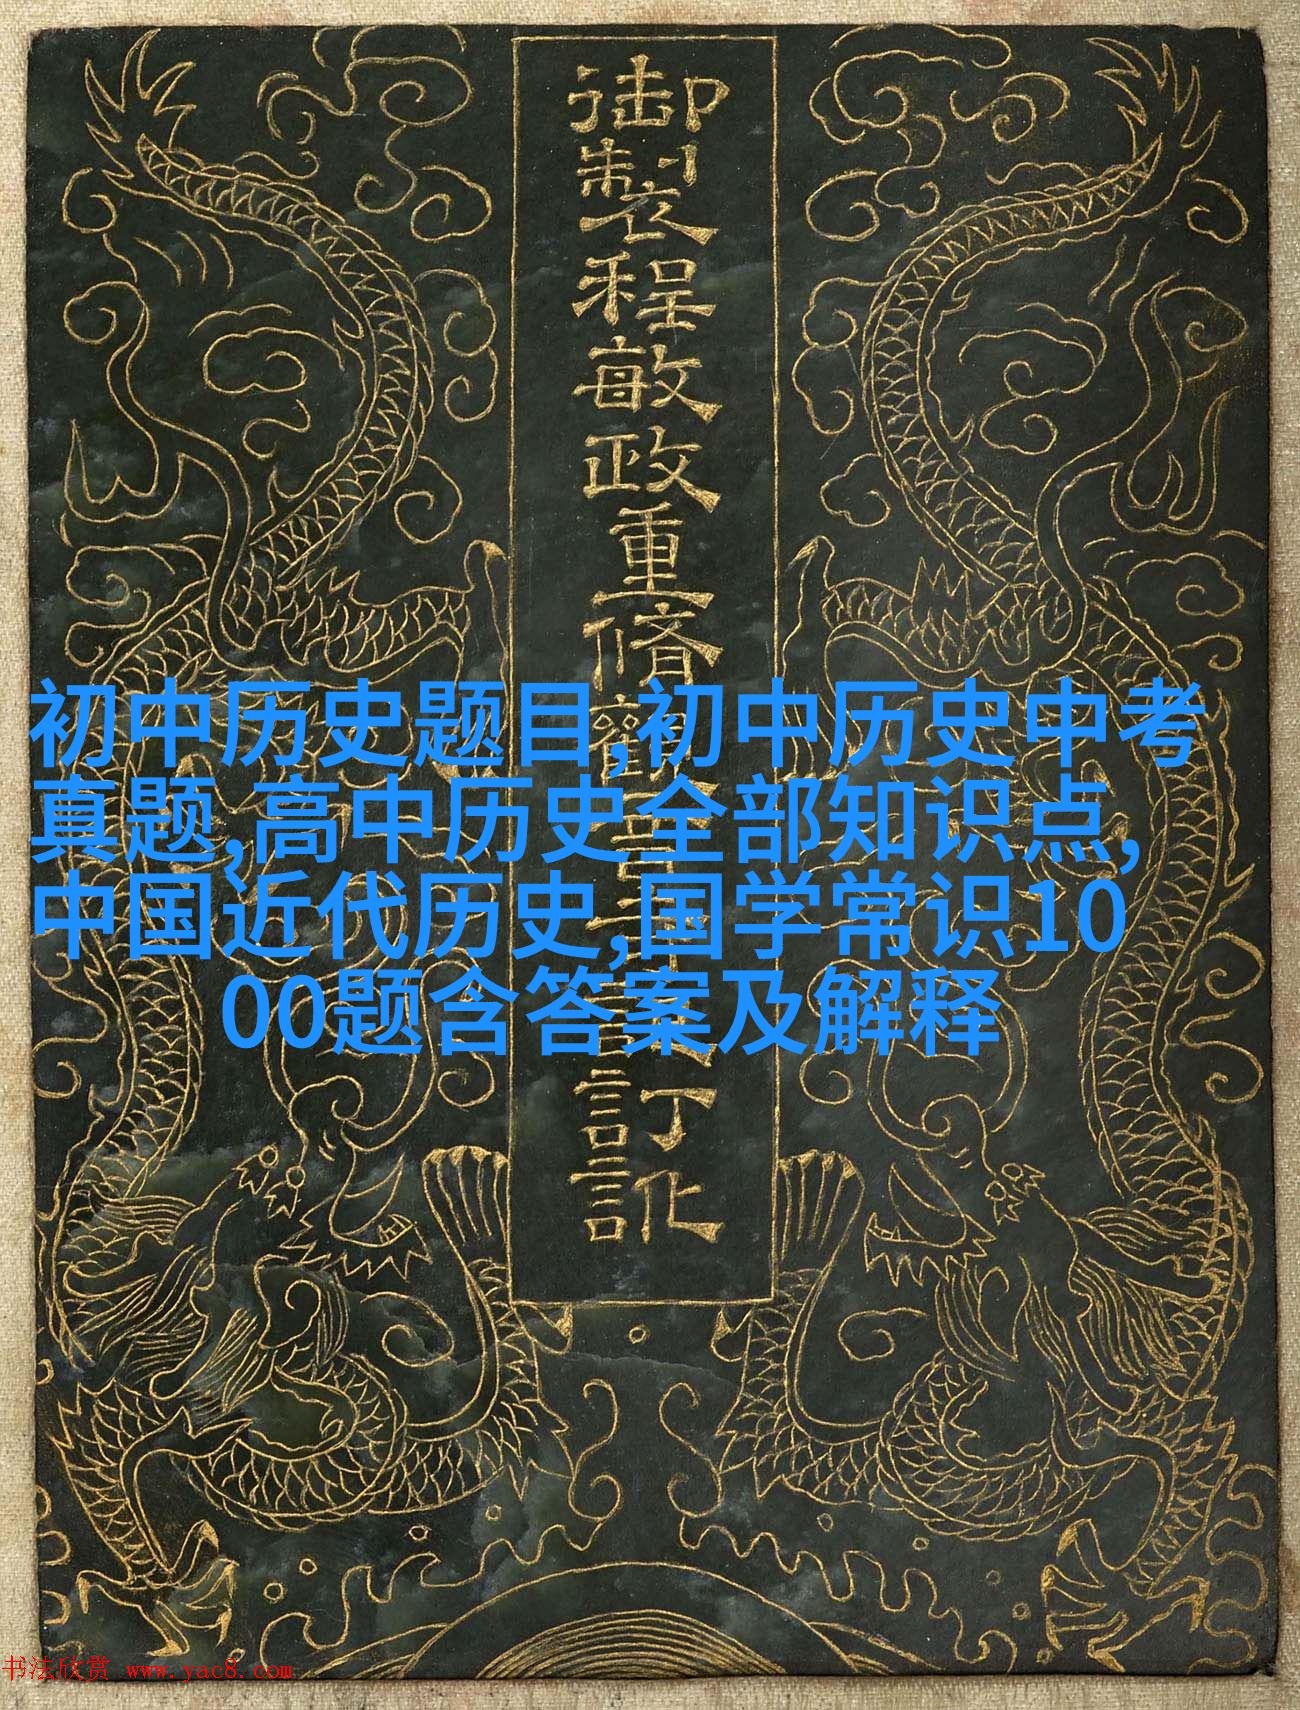 御製程敏政重脩訂訛
初中历史题目,初中历史中考
真题,高中历史全部知识点,
中国近代历史,国学常识10
00题含答案及解释
书法欣赏 www.yac8.com